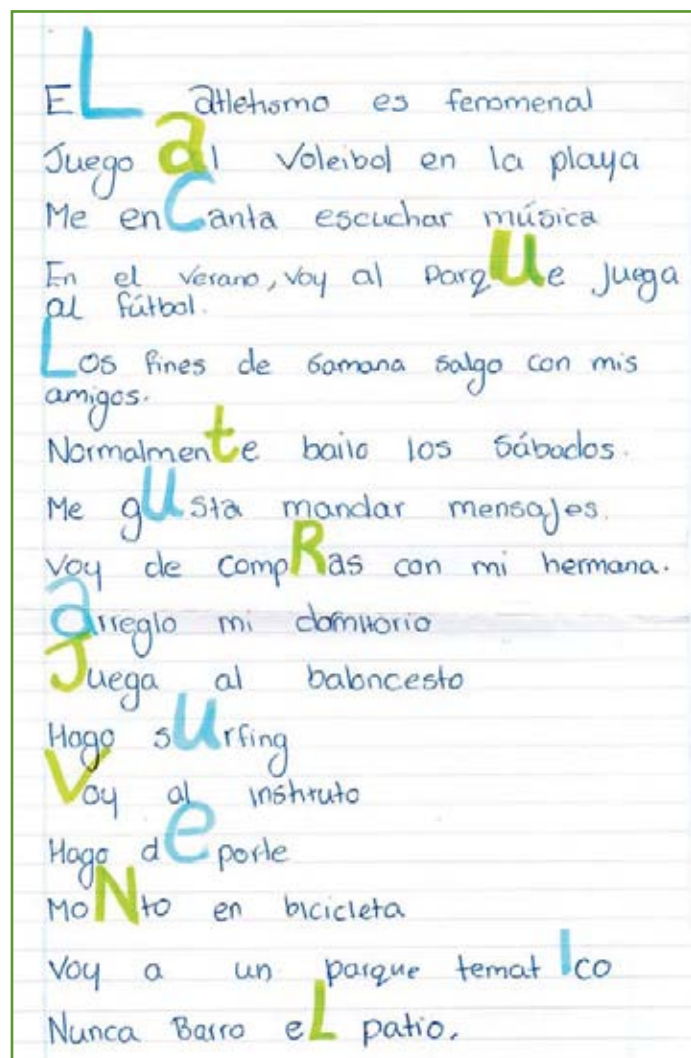 EL atletismo es fenomenal
Juego al Voleibol en la playa
Me enCanta escuchar música
En el verano, voy al parque juega
al fútbol.
Los fines de samana salgo con mis
amigos.
Normalmente bailo los Sábados.
Me gusta mandar mensajes.
Voy de compRas con mi hermana.
arreglo mi dormitorio
Juega al baloncesto
Hago surfing
Voy al instituto
Hago deporte
MoNto en bicicleta
Voy a un parque tematIco
Nunca Barro eL patio.